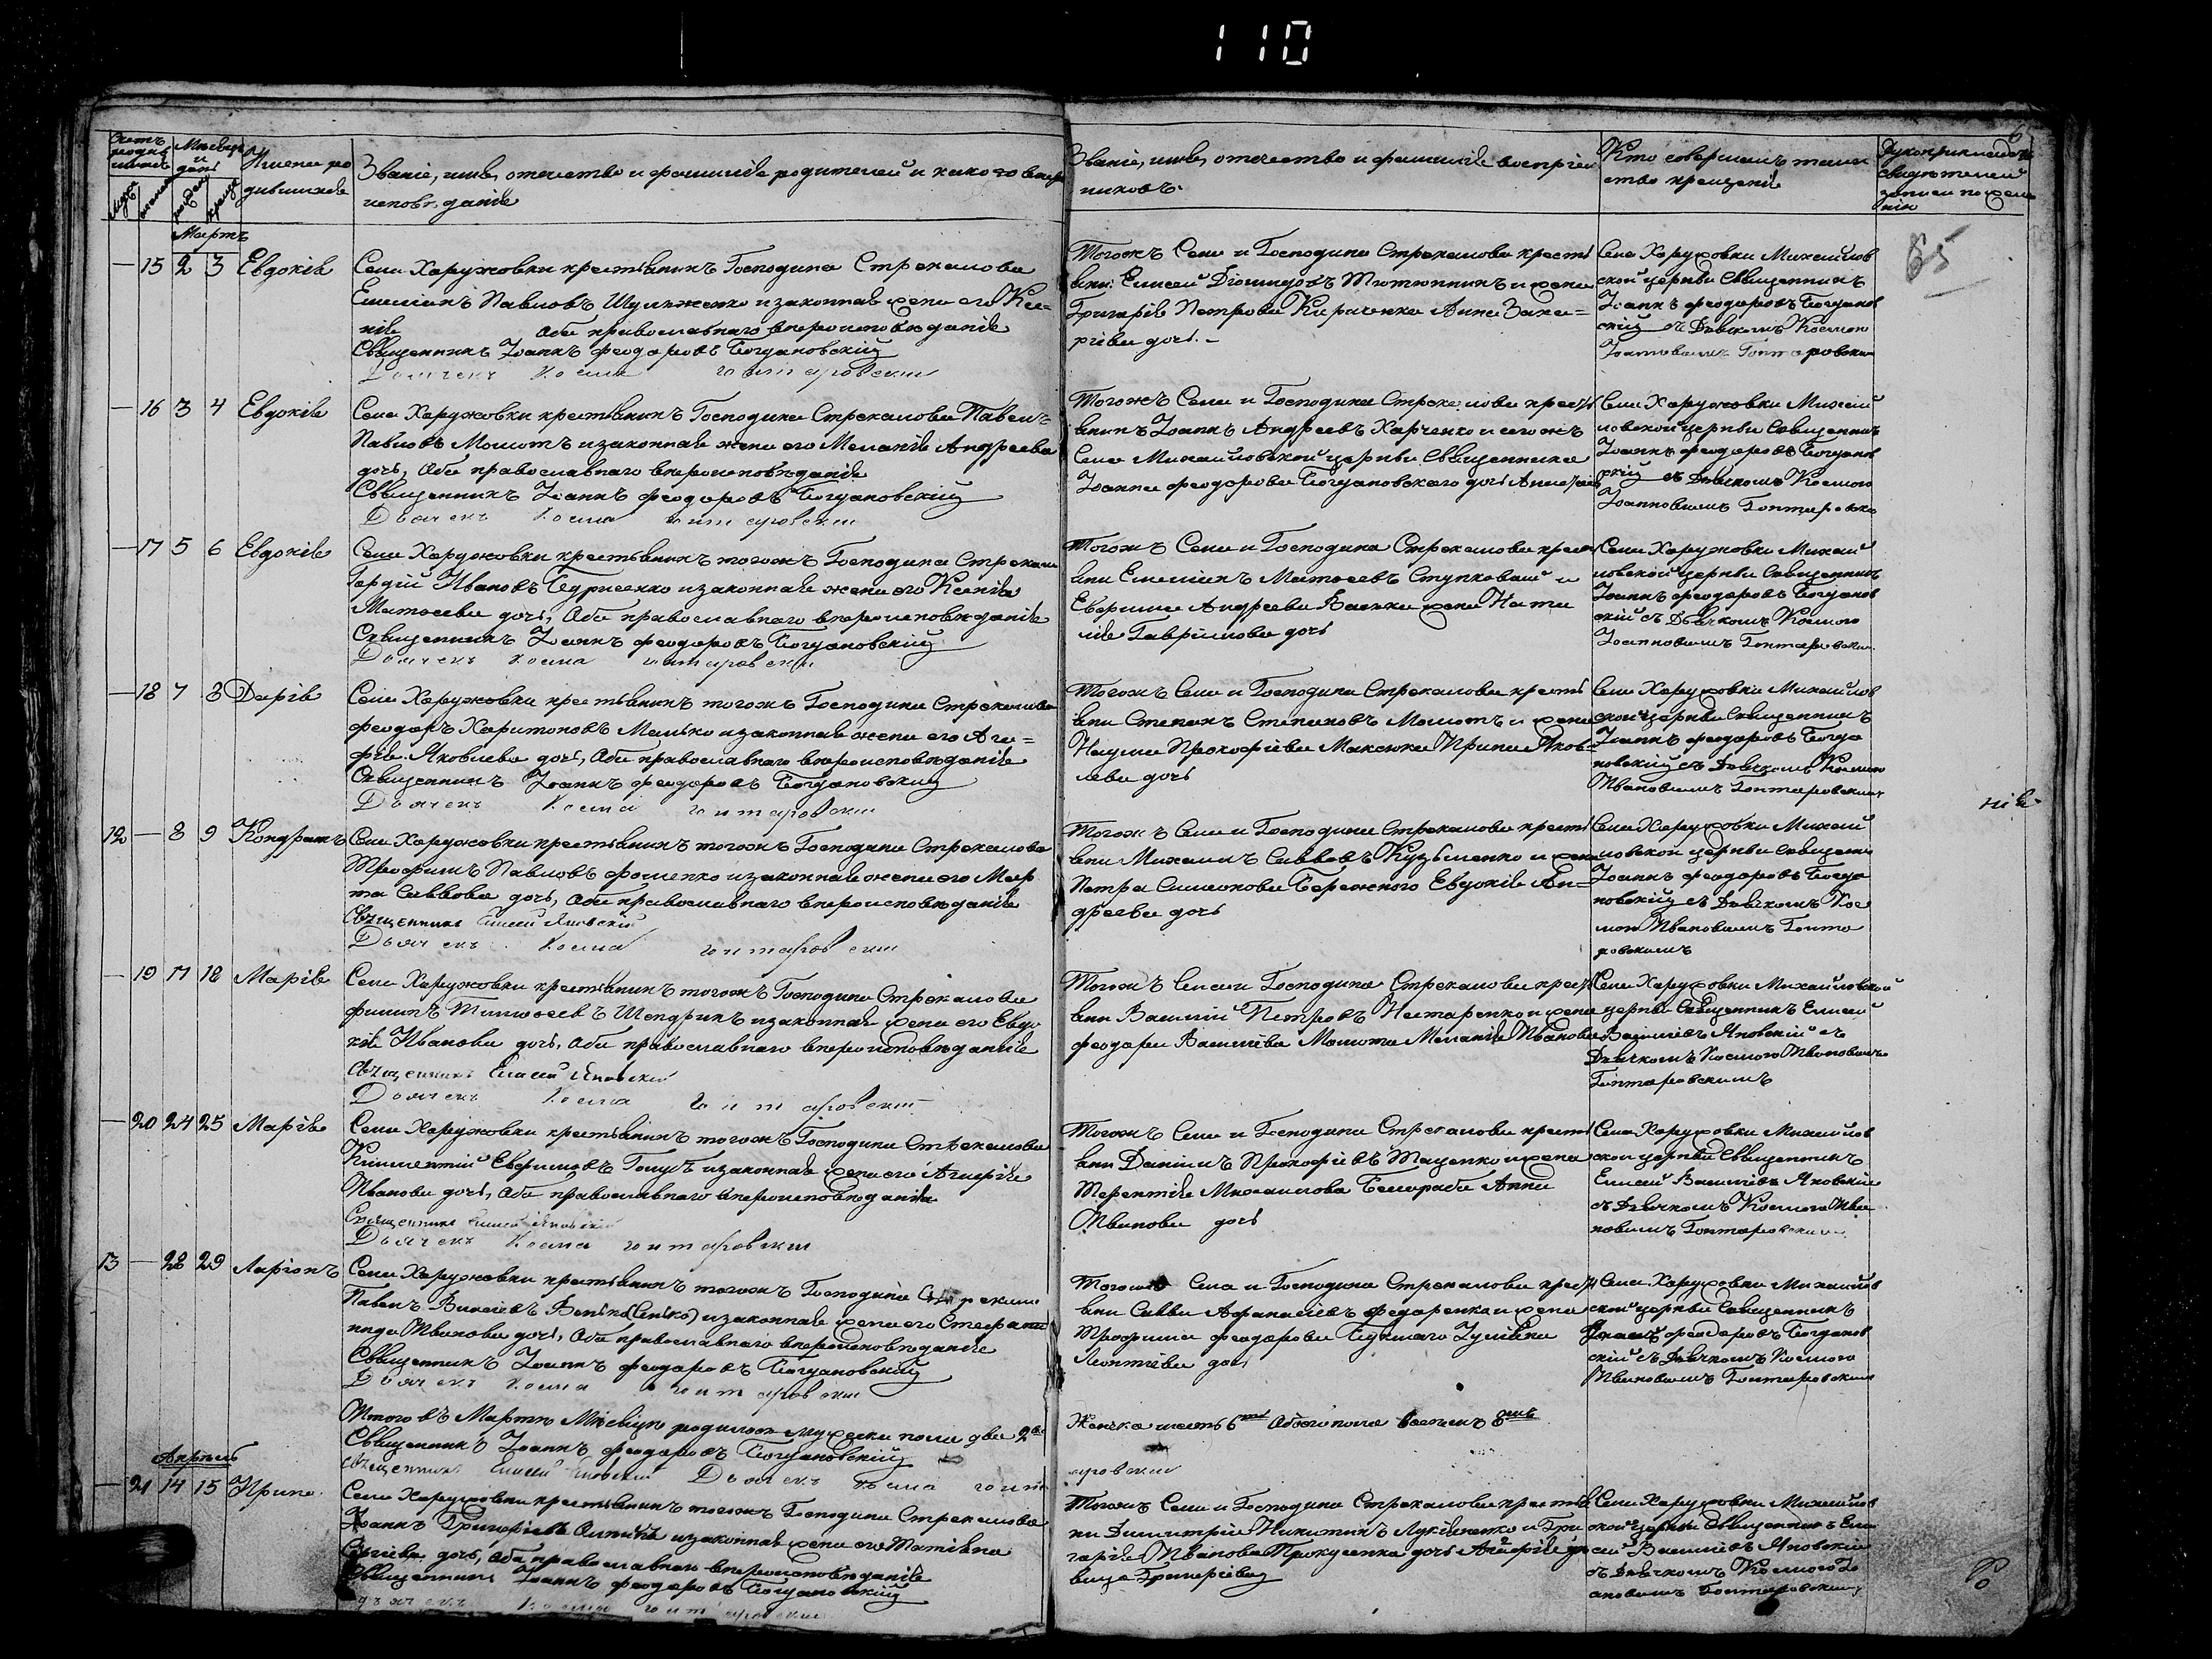 110
6
Счетъ родив шихся
Мѣсяцъ и день
Имена ро дившихся
Званіе, имя, отечество и фамилія родителей и какого вѣро
исповѣданія
Званіе, имя, отечество и фамилія воспріем
никовъ
Кто совершалъ таин
ство крещенія
Рукоприкладство
свидѣтелей
записи по жела
нію
Мартъ
65
— 15 2 3 Евдокія
Села Харужовки крестьянинъ Господина Стрекалова
Емеліанъ Павловъ и законная жена его Ксе=
нія Оба православнаго вѣроисповѣданія
Священникъ Іоаннъ Феодоровъ Богдановскій
Дьячекъ Косма Гонтаровскій
Тогожъ Села и Господина Стрекалова кресть
янинъ Елисей Діомидовъ Тютюнникъ и жена
Григорія Петрова Кириченка Анна Заха=
ріева дочь.
Села Харужовки Михайлов
ской церкви Священникъ
Іоаннъ Феодоровъ Богданов
скій съ Дьячкомъ Космою
Іоанновымъ Гонтаровским
— 16 3 4 Евдокія
Села Харужовки крестьянинъ Господина Стрекалова Павелъ
Павловъ Молотъ и законная жена его Меланія Андреева
дочь, Оба православнаго вѣроисповѣданія
Священникъ Іоаннъ Феодоровъ Богдановскій
Дьячекъ Косма Гонтаровскій
Тогожъ Села и Господина Стрекалова кресть
янинъ Іоаннъ Андреевъ Харченко и тогожъ
Села Михайловской церкви Священника
Іоанна Феодорова Богдановскаго дочь
Села Харужовки Михай
ловской церкви Священникъ
Іоаннъ Феодоровъ Богданов
скій съ Дьячкомъ Космою
Іоанновымъ Гонтаровско
— 17 5 6 Евдокія
Села Харужовки крестьянинъ тогожъ Господина Стрекало
Гордій Ивановъ и законная жена его Ксенія
Матвеева дочь, Оба православнаго вѣроисповѣданія
Священникъ Іоаннъ Феодоровъ Богдановскій
Дьячекъ Косма Гонтаровскій
Тогожъ Села и Господина Стрекалова крест
янинъ Емеліанъ Матвеевъ и
Ефрема Андреева жена Ната
лія Гаврилова дочь
Села Харужовки Михай
ловской церкви Священникъ
Іоаннъ Феодоровъ Богданов
скій съ Дьячкомъ Космою
Іоанновымъ Гонтаровским
— 18 7 8 Дарія
Села Харужовки крестьянинъ тогожъ Господина Стрекалова
Феодоръ Харитоновъ Малько и законная жена его Ага=
фія Яковлева дочь, Оба православнаго вѣроисповѣданія
Священникъ Іоаннъ Феодоровъ Богдановскій
Дьячекъ Косма Гонтаровскій
Тогожъ Села и Господина Стрекалова кресть
янинъ Степанъ Степановъ Молотъ и жена
Наума Прокофіева Ирина Яков=
лева дочь
Села Харужовки Михайлов
ской церкви Священникъ
Іоаннъ Феодоровъ Богда
новскій съ Дьячкомъ Космою
Ивановымъ Гонтаровским
нія
12 — 8 9 Кондратъ
Села Харужовки крестьянинъ тогожъ Господина Стрекалова
Трофимъ Павловъ Фоменко и законная жена его Мар
та Саввова дочь, Оба православнаго вѣроисповѣданія
Священникъ Елисей Яновскій
Дьячекъ Косма Гонтаровскій
Тогожъ Села и Господина Стрекалова кресть
янинъ Михаилъ Саввовъ Кузьменко и жена
Петра Симеонова Бережного Евдокія Ан=
дреева дочь
Села Харужовки Михай
ловской церкви Священ
Іоаннъ Феодоровъ Богда
новскій съ Дьячкомъ Кос
мою Ивановымъ Гонта
ровскимъ
— 19 17 18 Марія
Села Харужовки крестьянинъ тогожъ Господина Стрекалова
Филипъ Тимофеевъ Щендрикъ и законная жена его Евдо
кія Иванова дочь, Оба православнаго вѣроисповѣданія
Священникъ Елисей Яновскій
Дьячекъ Косма Гонтаровскій
Тогожъ Села и Господина Стрекалова кресть
янинъ Василій Петровъ Нестаренко и жена
Феодора Василіева Молота Меланія Иванова
Села Харужовки Михайловской
церкви Священникъ Елисей
Василіевъ Яновскій съ
Дьячкомъ Космою Ивановымъ
Гонтаровскимъ
— 20 24 25 Марія
Села Харужовки крестьянинъ тогожъ Господина Стрекалова
Климентій Ефремовъ Голубъ и законная жена его Агафія
Иванова дочь, Оба православнаго вѣроисповѣданія
Священникъ Елисей Яновскій
Дьячекъ Косма Гонтаровскій
Тогожъ Села и Господина Стрекалова кресть
янинъ Даніилъ Прокофіевъ Таценко и жена
Терентія Михаилова Анна
Иванова дочь
Села Харужовки Михайлов
ской церкви Священникъ
Елисей Василіевъ Яновскій
съ Дьячкомъ Космою Ива
новымъ Гонтаровским
13 — 28 29 Ларіонъ
Села Харужовки крестьянинъ тогожъ Господина Стрекало
Павелъ Василіевъ (Сенько) и законная жена его Стефани
нида Иванова дочь, Оба православнаго вѣроисповѣданія
Священникъ Іоаннъ Феодоровъ Богдановскій
Дьячекъ Косма Гонтаровскій
Тогожъ Села и Господина Стрекалова кресть
янинъ Савва Афанасіевъ Федоренко и жена
Трофима Феодорова Іуліанна
Леонтіева дочь
Села Харужовки Михайлов
ской церкви Священникъ
Іоаннъ Феодоровъ Богданов
скій съ Дьячкомъ Космою
Ивановымъ Гонтаровским
Итого въ Мартѣ Мѣсяцѣ родилось мужеска пола два 2
Женска шесть 6 Обоего пола восемь 8
Священникъ Іоаннъ Феодоровъ Богдановскій
Священникъ Елисей Яновскій Дьячекъ Косма Гонт
аровскій
Апрѣль
— 21 14 15 Ирина
Села Харужовки крестьянинъ тогожъ Господина Стрекалова
Іоаннъ Григоріевъ и законная жена его Татіяна
Сергіева дочь, Оба православнаго вѣроисповѣданія
Священникъ Іоаннъ Феодоровъ Богдановскій
Дьячекъ Косма Гонтаровскій
Тогожъ Села и Господина Стрекалова крестья
нинъ Димитрій Никитинъ Лукіяненко и Гри
горія Иванова дочь
вица Григоріева
Села Харужовки Михайлов
ской церкви Священникъ Ели
сей Василіевъ Яновскій
съ Дьячкомъ Космою Іо
анновымъ Гонтаровским